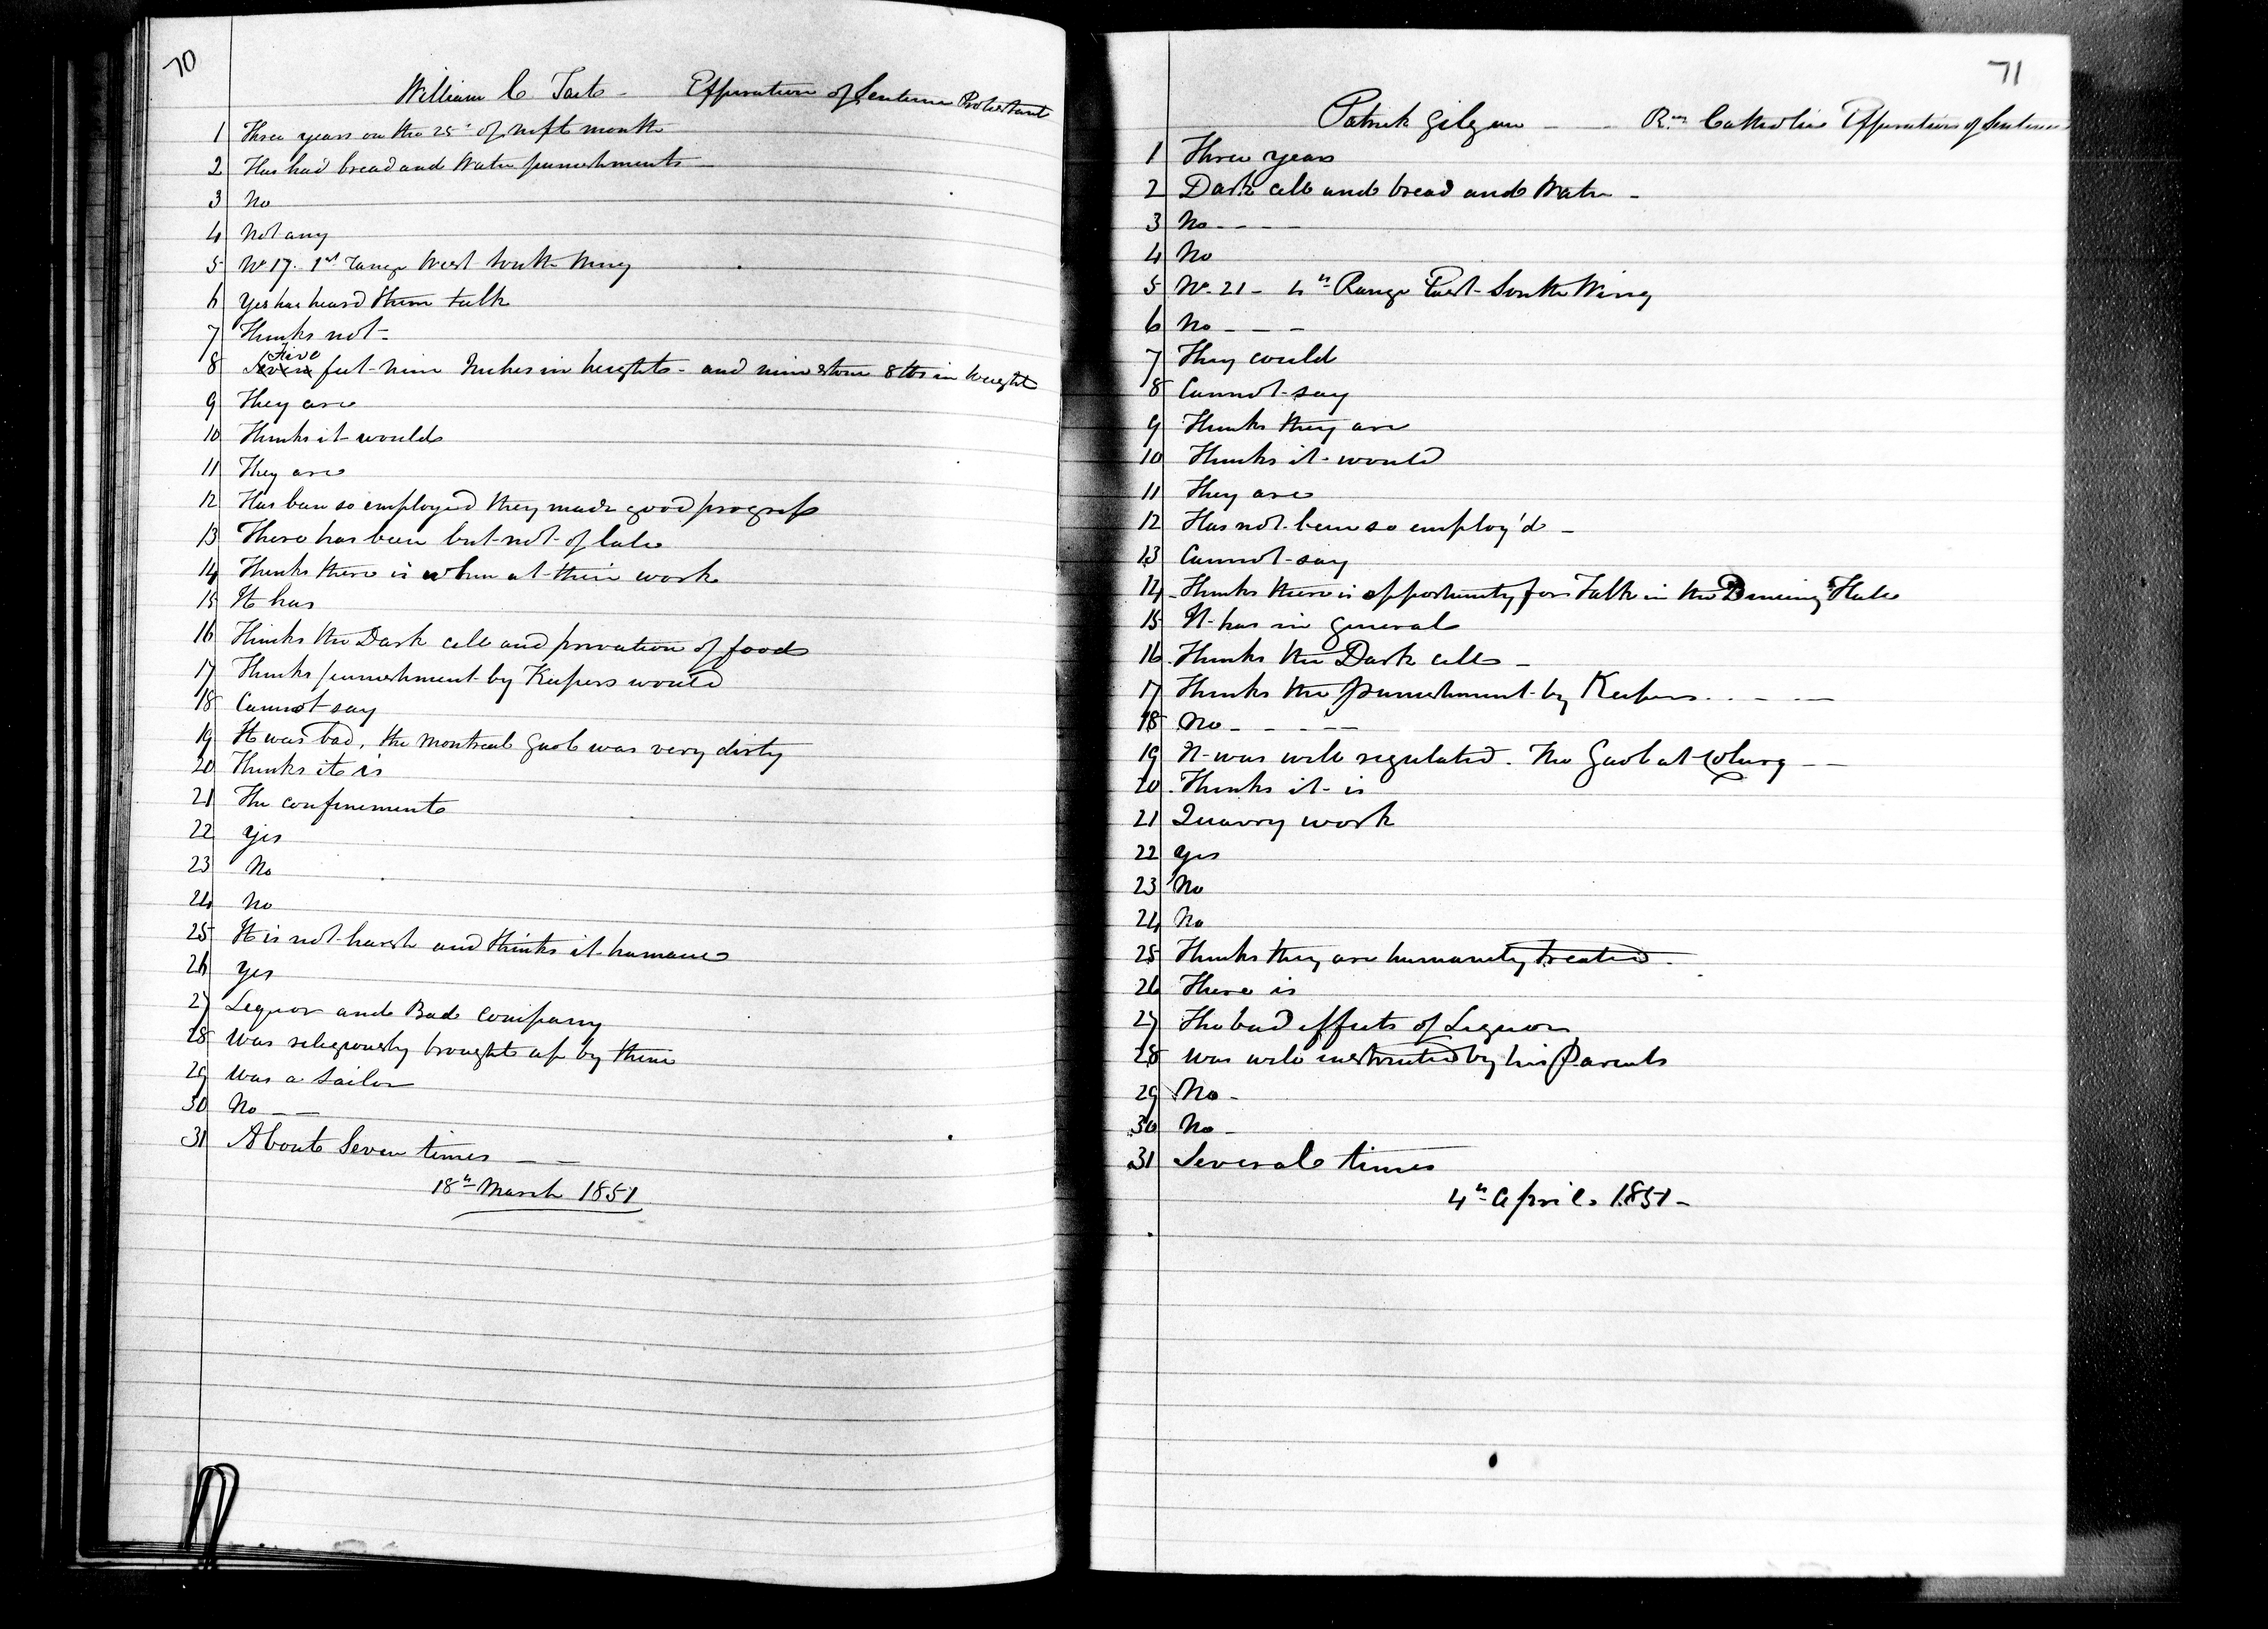 70
William C Tait - Expiration of Sentence Protestant
1 Three years on the 25th of next month
2 Has had bread and Water punishments
3 No
4 Not any
5 No 17. 1st range West South Wing
6 Yes has heard them talk
7 Thinks not -
Five
8 Seven feet nine Inches in height - and nine stone 8 lbs in Weight
9 They are
10 Thinks it would
11 They are
12 Has been so employed they made good progress
13 There has been but not of late
14 Thinks there is when at their work
15 It has
16 Thinks the Dark cell and privation of food
17 Thinks punishment by Keepers would
18 Cannot say
19 It was bad, the Montreal Gaol was very dirty
20 Thinks it is
21 The confinement
22 Yes
23 No
24 No
25 It is not harsh and thinks it humane
26 Yes
27 Liquor and Bad Company
28 Was religiously brought up by them
29 Was a Sailor
30 No - -
31 About Seven times - -
18th March 1851
71
Patrick Gilgan - - Rn Catholic Expiration of Sentence
1 Three years
2 Dark cell and bread and Water -
3 No - - - -
4 No
5 No. 21 - 4th Range East South Wing
6 No - - -
7 They could
8 Cannot say
9 Thinks they are
10 Thinks it would
11 They are
12 Has not been so employ'd -
13 Cannot say
14 Thinks there is opportunity for Talk in the Dining Hall
15 It has in general
16 Thinks the Dark cell -
17 Thinks the punishment by Keepers - - - -
18 No - - - - -
19 It was well regulated. The Gaol at Coburg - -
20 Thinks it is
21 Quarry work
22 Yes
23 No
24 No
25 Thinks they are humanely treated.
26 There is
27 The bad effects of Liquor
28 Was well instructed by his Parents
29 No -
30 No -
31 Several times
4th April 1851 -